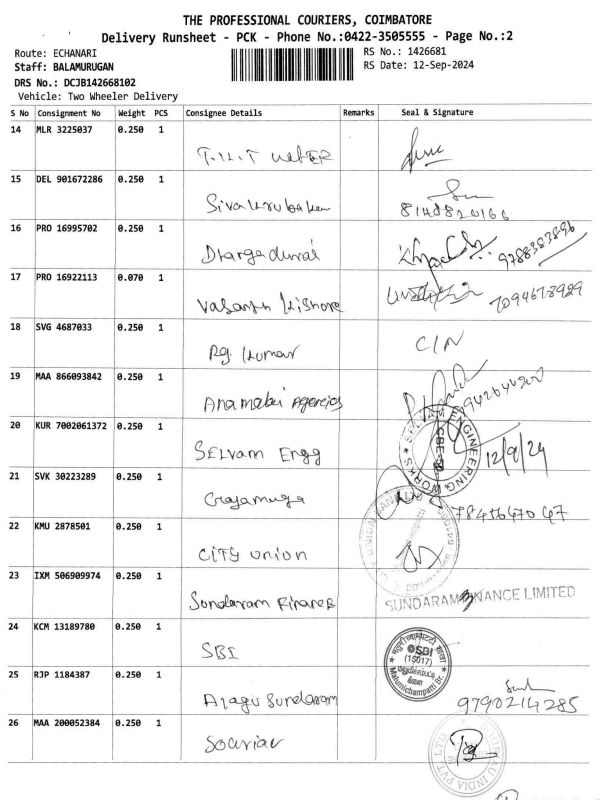 THE PROFESSIONAL COURIERS, COIMBATORE
Delivery Runsheet - PCK - Phone No.:0422-3505555 - Page No.:2
Route: ECHANARI
RS No.: 1426681
Staff: BALAMURUGAN
RS Date: 12-Sep-2024
DRS No.: DCJB142668102
Vehicle: Two Wheeler Delivery
S No Consignment No Weight PCS Consignee Details Remarks Seal & Signature
14 MLR 3225037 0.250 1
15 DEL 901672286 0.250 1
8148820166
16 PRO 16995702 0.250 1
9788383896
17 PRO 16922113 0.070 1
Vasanth Kishore
7094678929
18 SVG 4687033 0.250 1
Rg. Kumar
19 MAA 866093842 0.250 1
Agencies
20 KUR 7002061372 0.250 1
SELVam Engg
ENGINEERING WORKS
CBE-50
12/9/24
21 SVK 30223289 0.250 1
22 KMU 2878501 0.250 1
City union
23 IXM 506909974 0.250 1
Sundaram Finance
SUNDARAM FINANCE LIMITED
24 KCM 13189780 0.250 1
SBI
SBI
(15017)
மலுமிச்சம்பட்டி
கிளை
Malumichampatti Br.
25 RJP 1184387 0.250 1
Azagu Sundaram
9790214285
26 MAA 200052384 0.250 1
INDIA PVT. LTD